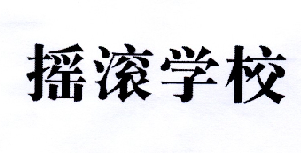 摇滚学校